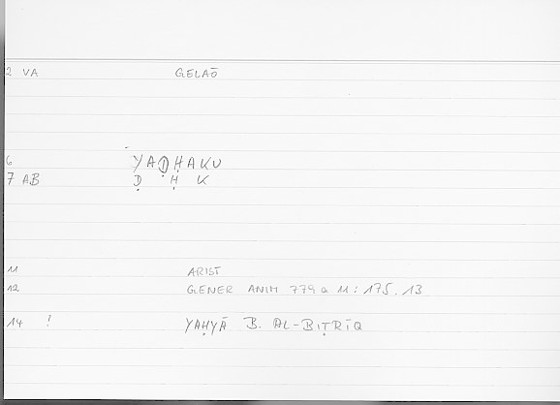 2 VA GELAŌ
6 YAḌḤAKU
7 AB Ḍ Ḥ K
11 ARIST
12 GENER ANIM 779 a 11 : 175, 13
14 ! YAḤYĀ B. AL-BIṬRĪQ